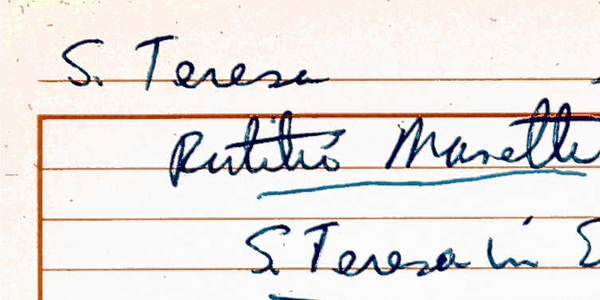 S. Teresa
Rutilio Manetti
S. Teresa in